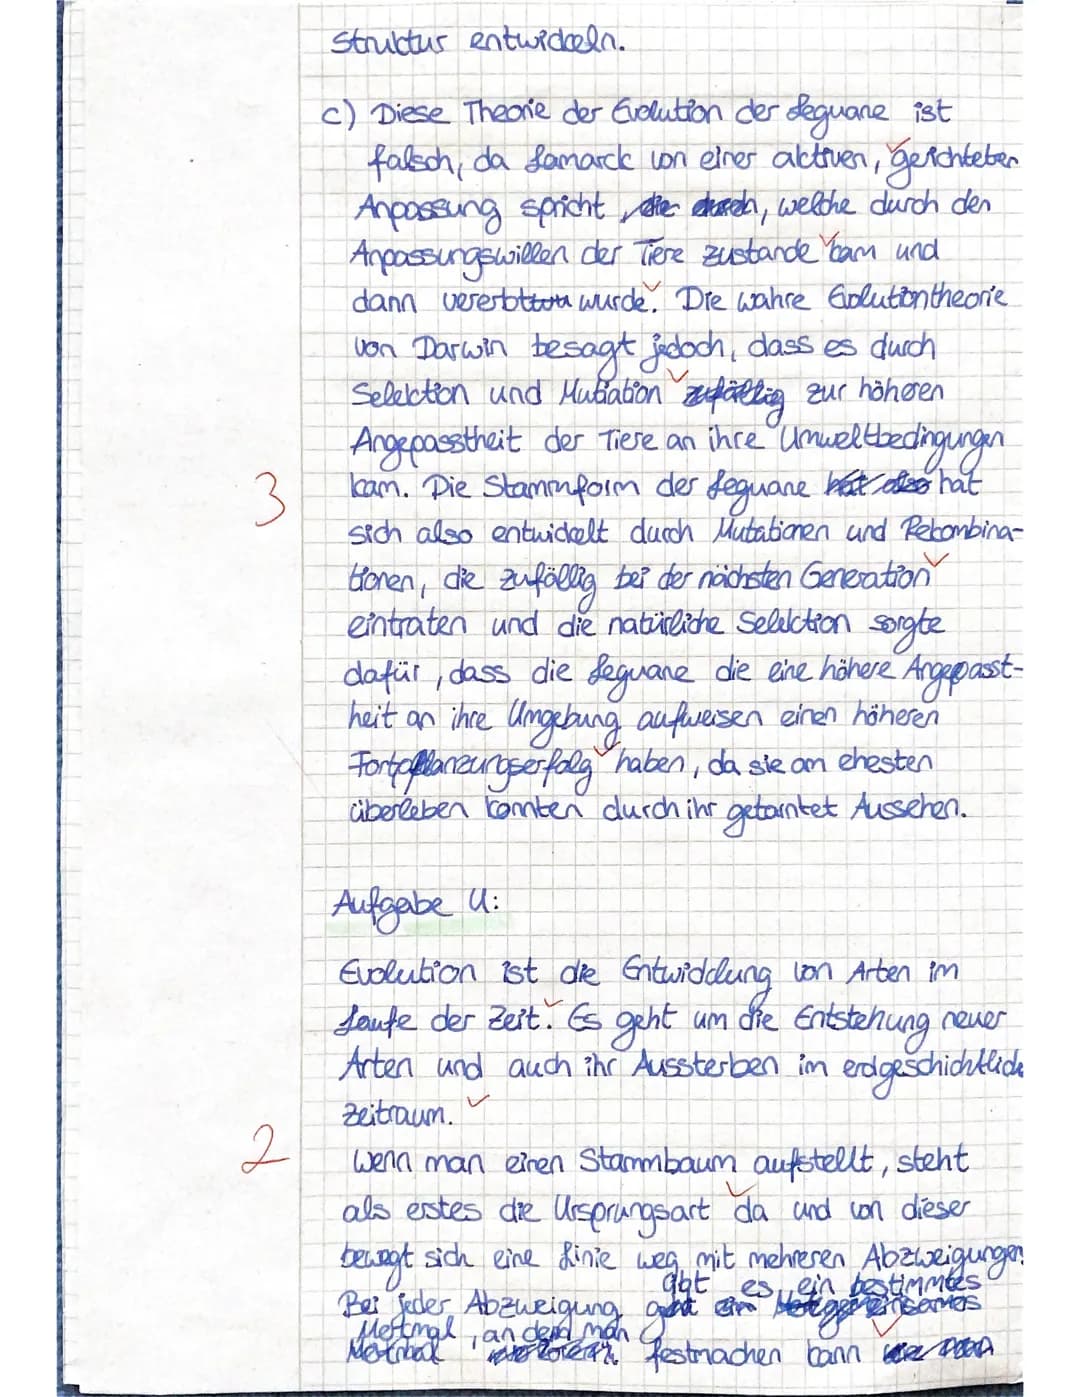 Struktur entwickeln.
c) Diese Theorie der Evolution der Leguane ist
falsch, da Lamarck von einer aktiven, gerichteten
Anpassung spricht, die durch, welche durch den
Anpassungswillen der Tiere zustande kam und
dann vererbt wurde. Die wahre Evolutiontheorie
von Darwin besagt jedoch, dass es durch
Selektion und Mutation zufällig zur höheren
Angepasstheit der Tiere an ihre Umweltbedingungen
3 kam. Die Stammform der Leguane hat also hat
sich also entwickelt durch Mutationen und Rekombina-
tionen, die zufällig bei der nächsten Generation
eintraten und die natürliche Selektion sorgte
dafür, dass die Leguane die eine höhere Angepasst-
heit an ihre Umgebung aufweisen einen höheren
Fortpflanzungserfolg haben, da sie am ehesten
überleben konnten durch ihr getarntet Aussehen.
Aufgabe 4:
Evolution ist die Entwicklung von Arten im
Laufe der Zeit. Es geht um die Entstehung neuer
Arten und auch ihr Aussterben im erdgeschichtlich
Zeitraum.
2 Wenn man einen Stammbaum aufstellt, steht
als erstes die Ursprungsart da und von dieser
bewegt sich eine Linie weg mit mehreren Abzweigungen.
Bei jeder Abzweigung gibt es ein bestimmtes
Merkmal, an dem man
festmachen kann